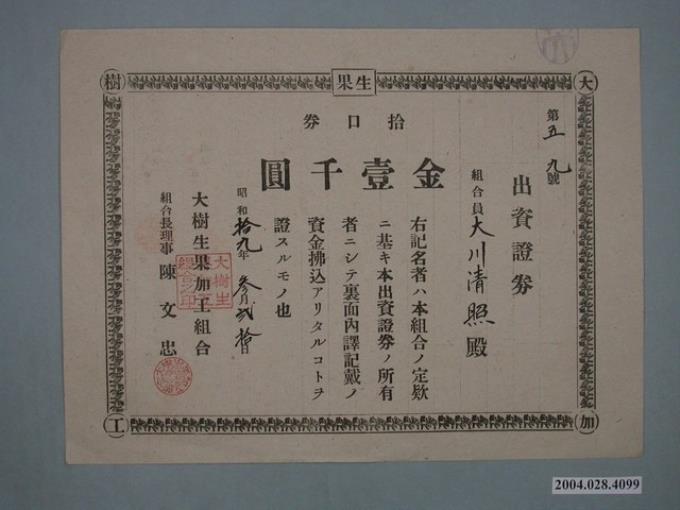 大樹
生果
加工
第五九號
出資證券
組合員 大川清照 殿
拾口券
金壹千圓
右記名者ハ本組合ノ定欵
ニ基キ本出資證券ノ所有
者ニシテ裏面內譯記戴ノ
資金拂込アリタルコトヲ
證スルモノ也
昭和拾九年參月貳拾
大樹生果加工組合
組合長理事 陳文忠
大樹生
2004.028.4099